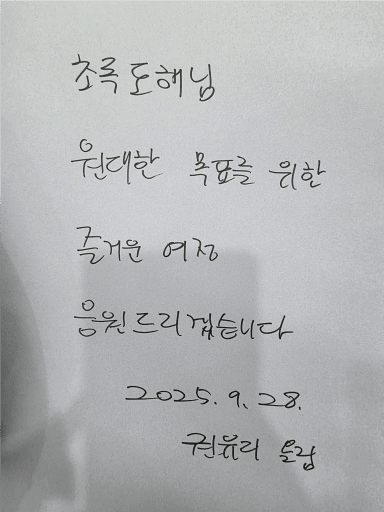 초록도해님
원대한 목표를 위한
즐거운 여정
응원드리겠습니다
2025. 9. 28.
권유리 올림